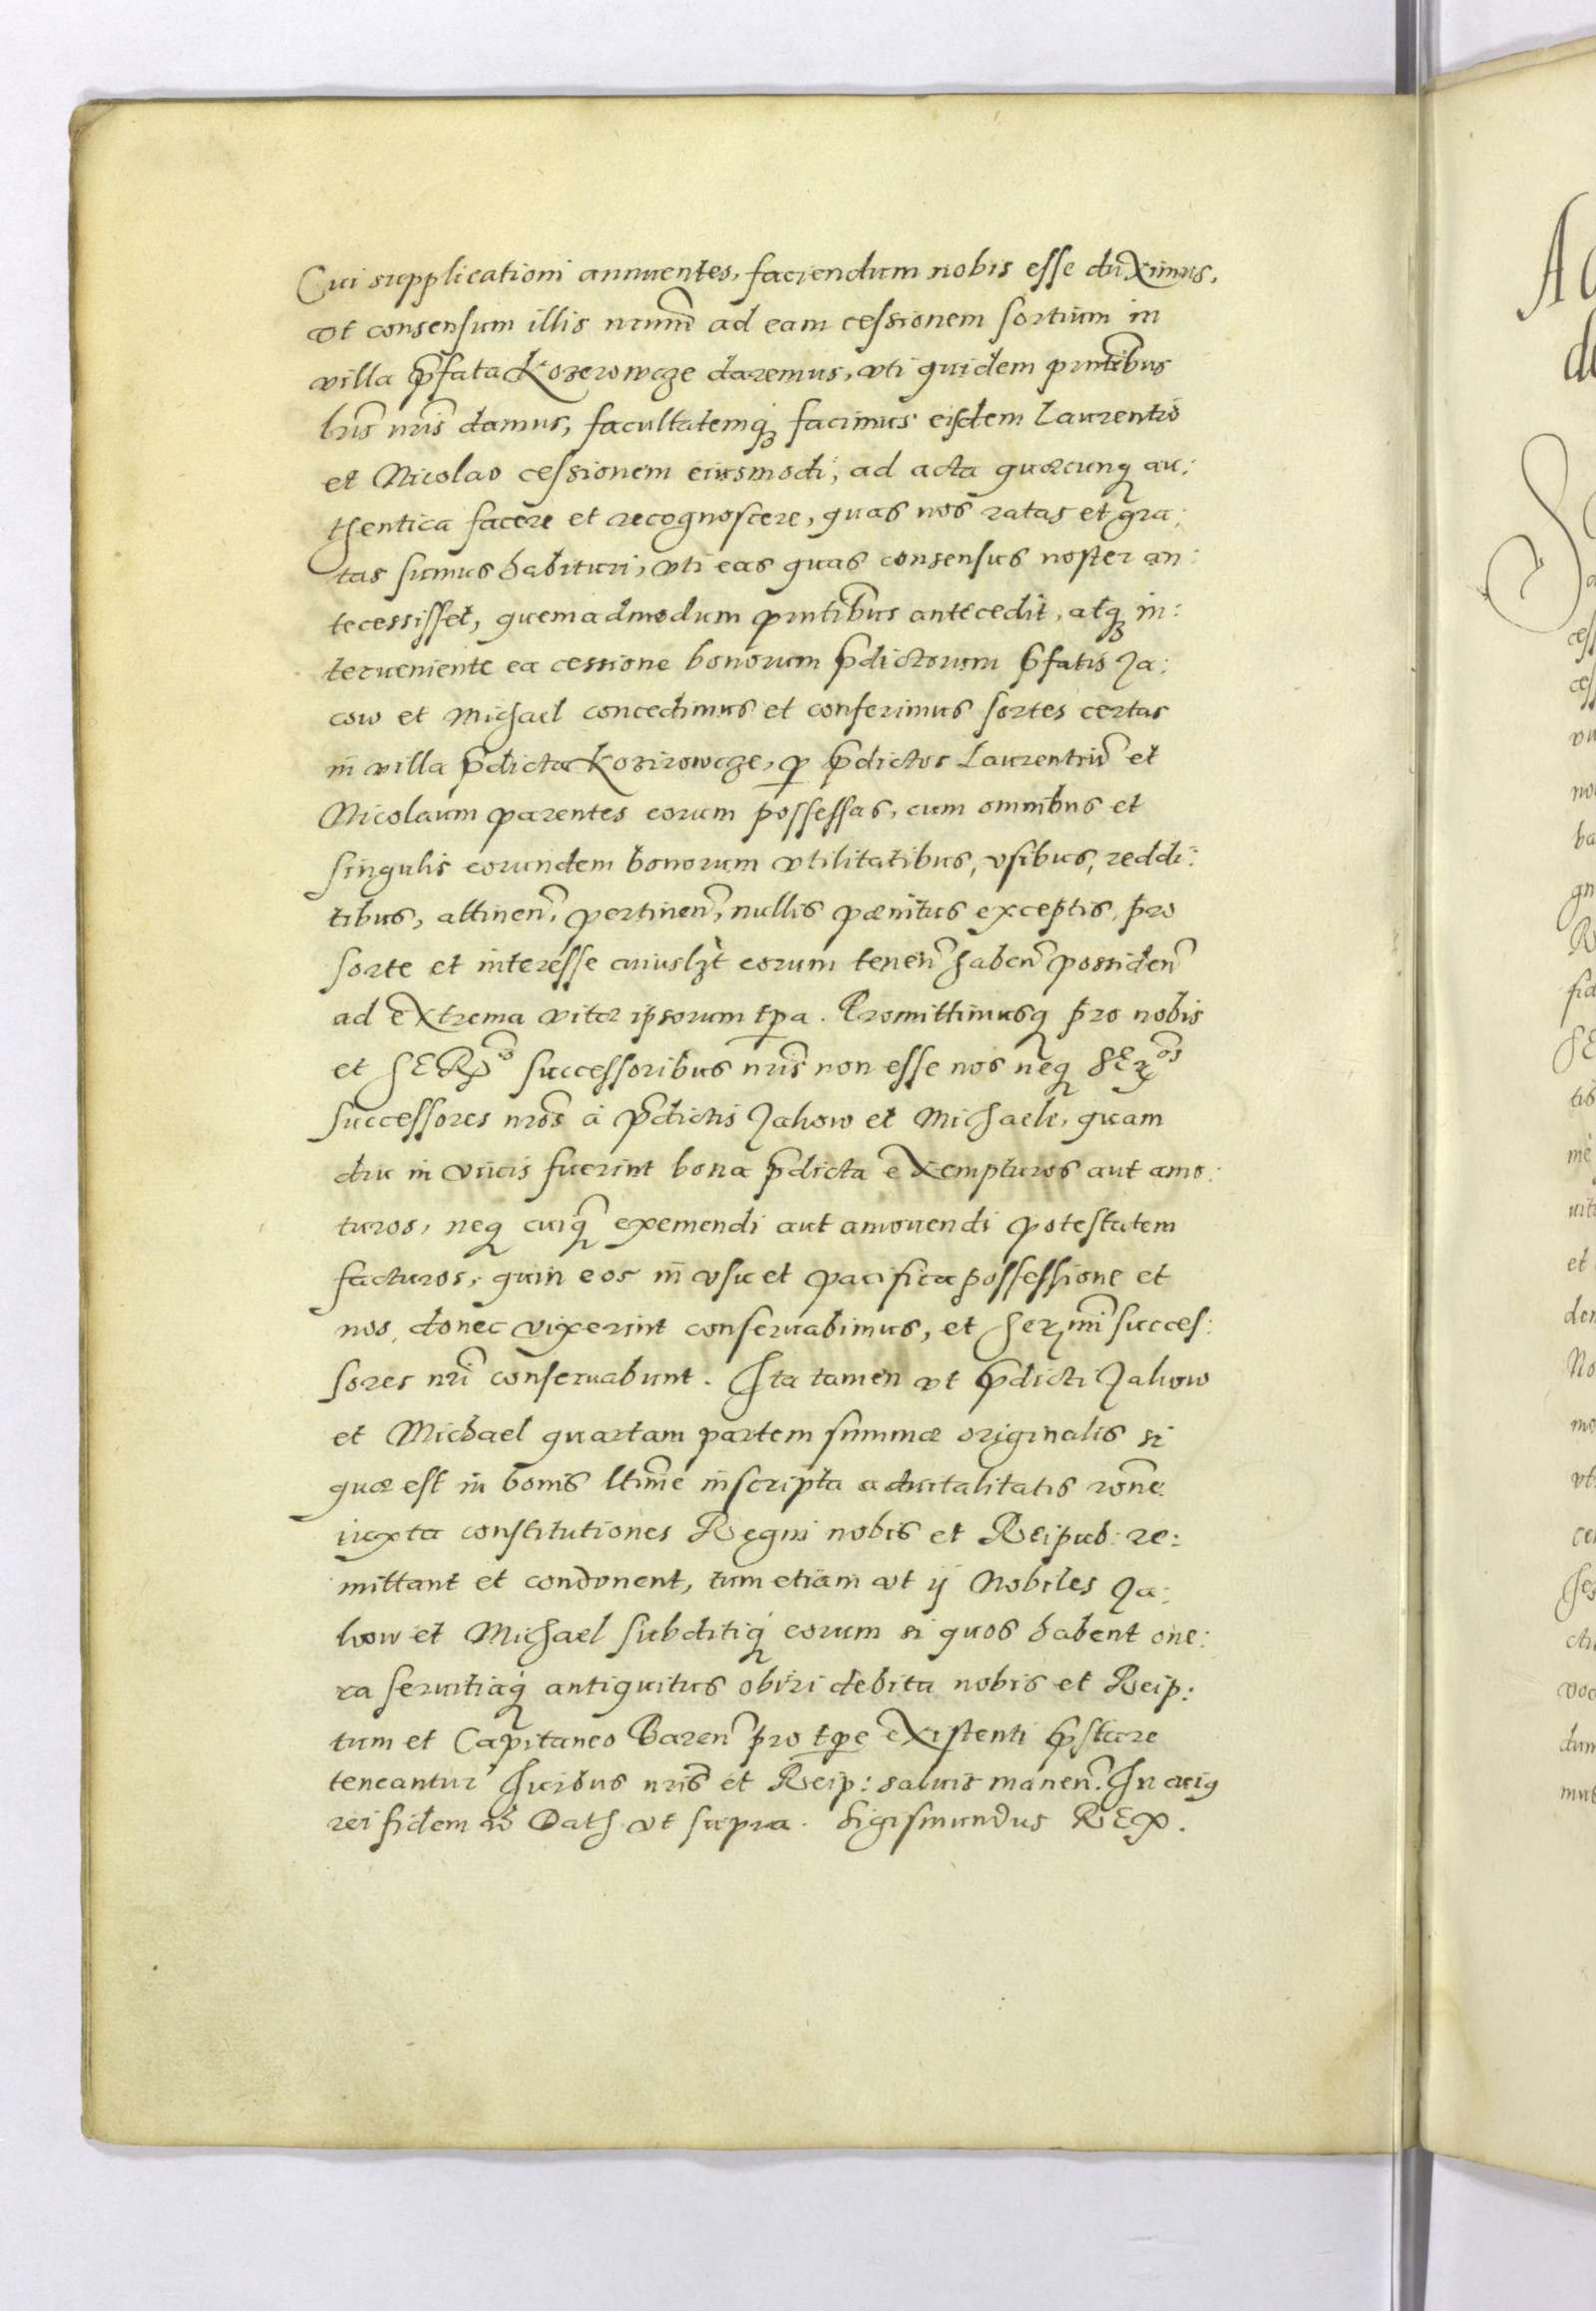 Cui supplicationi annuentes, faciendum nobis esse duximus,
vt consensum illis nrum̃ ad eam cessionem sortium in
villa p̃fata Kozerowcze daremus, vti quidem pnntibus
lris nris damus, facultatemq̃ facimus eisdem Laurentio
et Nicolao cessionem eiusmodi, ad acta quæcunq̃ au:
thentica facere et recognoscere, quas nos ratas et gra:
tas sumus habituri, vti eas quas consensus noster an:
tecessisset, quemadmodum pntibus antecedit, atq̃ in:
terueniente ea cessione bonorum p̃dictorum p̃fatis Ja:
cow et Michael concedimus et conferimus sortes certas
in villa p̃dicta Kozirowcze, p p̃dictos Laurentiũ et
Nicolaum parentes eorum possessas, cum omnibus et
singulis eorundem bonorum vtilitatibus, vsibus, reddi:
tibus, attinen̄, pertinen̄, nullis pœnitus exceptis, pro
sorte et interesse cuiuslzt eorum tenen̄ haben̄ possiden̄
ad extrema vitæ ipsorum tpa. Promittimusq̃ pro nobis
et SERmis successoribus nris non esse nos neq̃ SERmos
successores nros à p̃dictis Jahow et Michaele, quam
diu in viuis fuerint bona p̃dicta exempturos aut amo:
turos, neq̃ cuiq̃ exemendi aut amouendi potestatem
facturos, quin eos in vsu et pacifica possessione et
nos, donec vixerint conseruabimus, et Sermi succes:
sores nri conseruabunt. Ita tamen vt p̃dicti Jahow
et Michael quartam partem summæ originalis si
quæ est in bonis ltime inscripta aduitalitatis rone
iuxta constitutiones Regni nobis et Reipub: re:
mittant et condonent, tum etiam vt ij Nobiles Ja:
how et Michael subditiq̃ eorum si quos habent one:
ra seruitiaq̃ antiquitus obiri debita nobis et Reip:
tum et Capitaneo Baren̄ pro tpe existenti p̃stare
teneantur Iuribus nris et Reip: saluis manen̄. In cuiq
rei fidem Dath vt supra. Sigismundus REX.